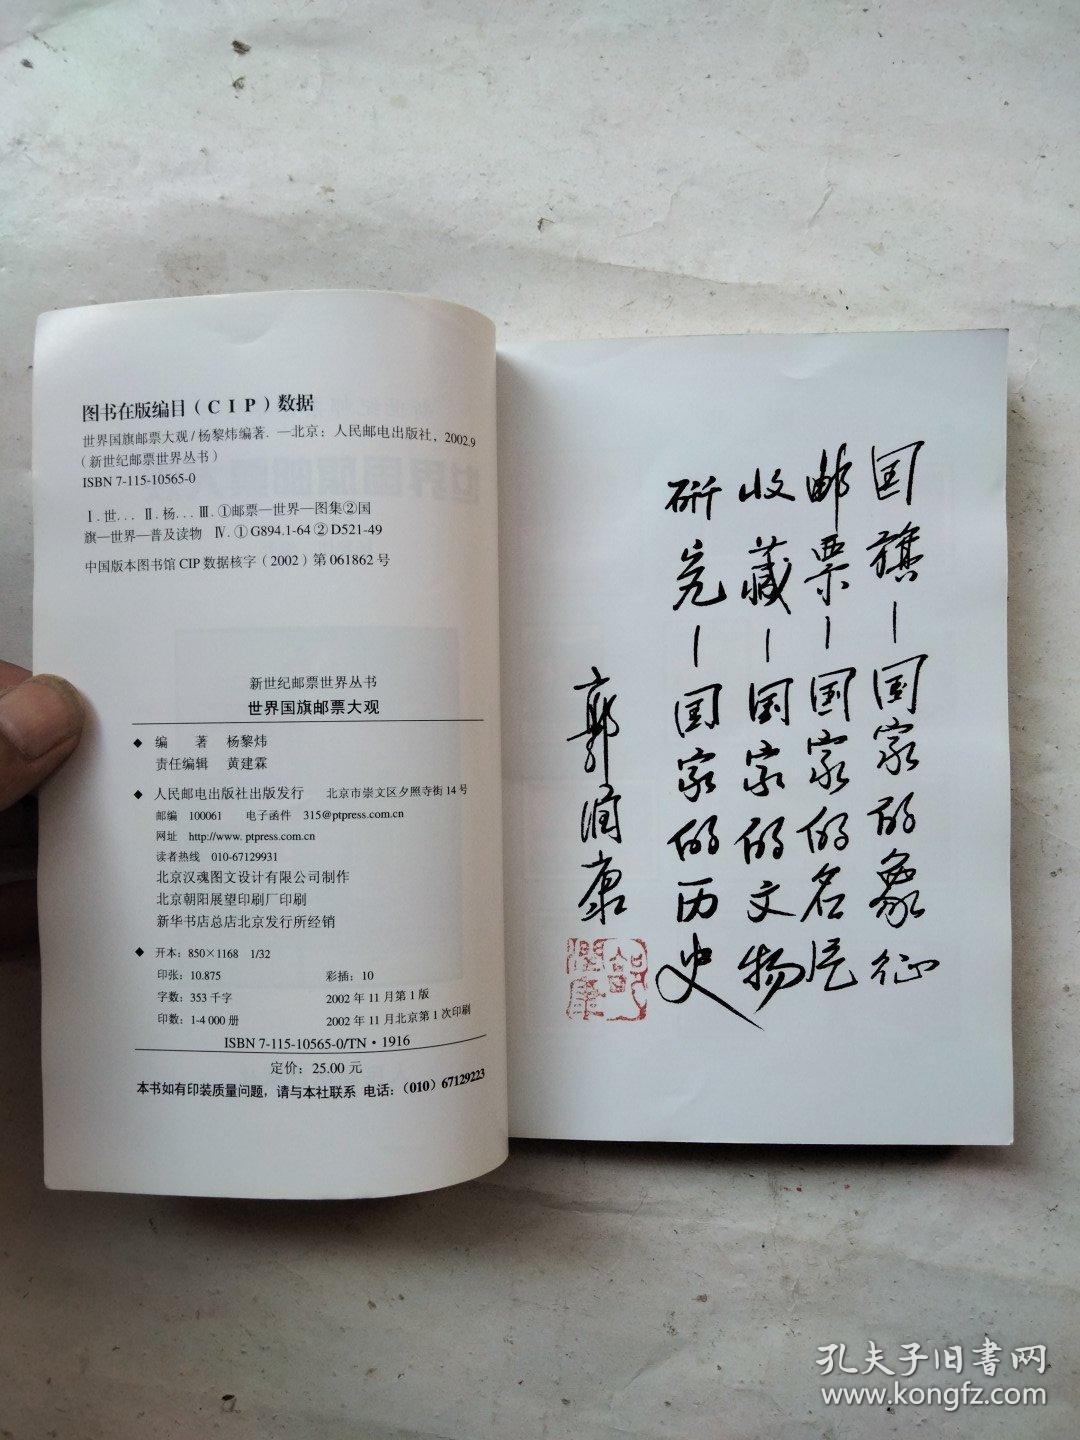 图书在版编目(CIP)数据
世界国旗邮票大观/杨黎炜编著. —北京:人民邮电出版社,2002.9
(新世纪邮票世界丛书)
ISBN 7-115-10565-0
Ⅰ.世... Ⅱ.杨... Ⅲ.①邮票—世界—图集②国
旗—世界—普及读物 Ⅳ.①G894.1-64②D521-49
中国版本图书馆CIP数据核字(2002)第061862号
新世纪邮票世界丛书
世界国旗邮票大观
◆ 编 著 杨黎炜
责任编辑 黄建霖
◆ 人民邮电出版社出版发行 北京市崇文区夕照寺街14号
邮编 100061 电子函件 315@ptpress.com.cn
网址 http://www.ptpress.com.cn
读者热线 010-67129931
北京汉魂图文设计有限公司制作
北京朝阳展望印刷厂印刷
新华书店总店北京发行所经销
◆ 开本:850×1168 1/32
印张:10.875 彩插:10
字数:353千字 2002年11月第1版
印数:1-4 000册 2002年11月北京第1次印刷
ISBN 7-115-10565-0/TN·1916
定价:25.00元
本书如有印装质量问题,请与本社联系 电话:(010)67129223
国旗－国家的象征
邮票－国家的名片
收藏－国家的文物
研究－国家的历史
郭润康
孔夫子旧書网
www.kongfz.com